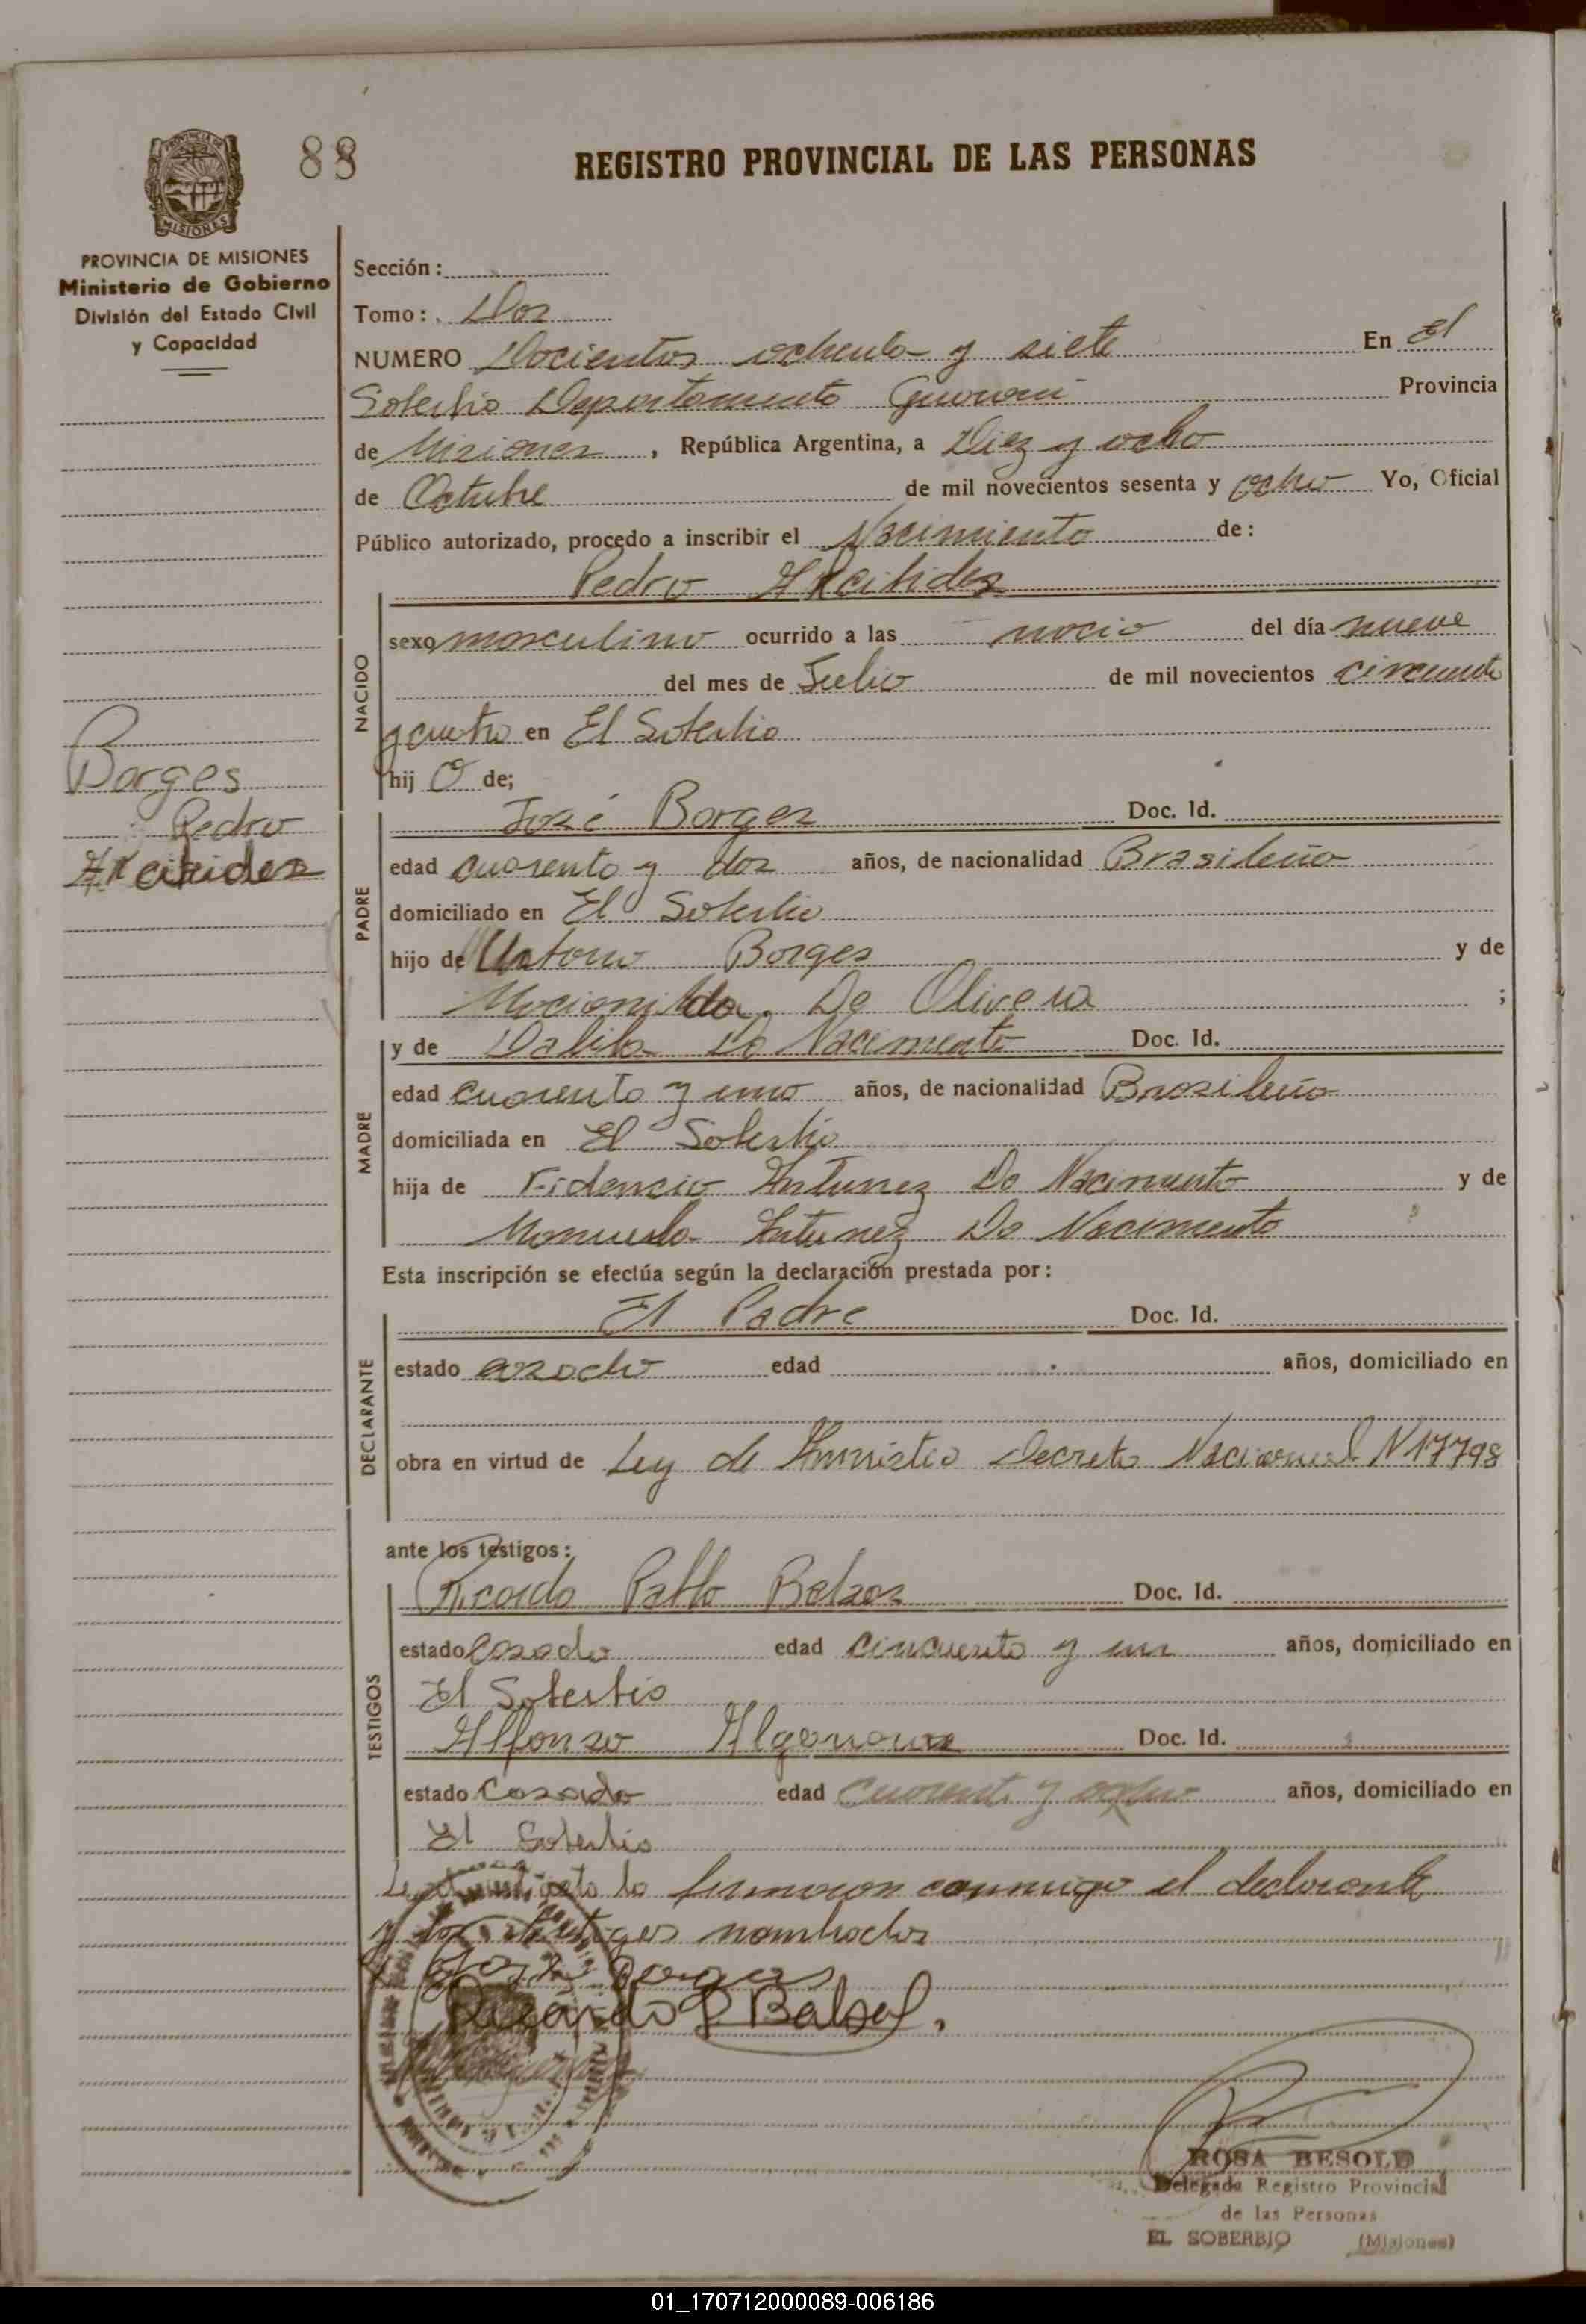 88
REGISTRO PROVINCIAL DE LAS PERSONAS
PROVINCIA DE MISIONES
Ministerio de Gobierno
División del Estado Civil
y Capacidad
Sección:
Tomo: Dos
NUMERO Docientos ochenta y siete En El
Soberbio Departamento Guarani Provincia
de Misiones, República Argentina, a Diez y ocho
de Octubre de mil novecientos sesenta y ocho Yo, Oficial
Público autorizado, procedo a inscribir el Nacimiento de:
Pedro Arcibides
NACIDO
sexo masculino ocurrido a las del día nueve
del mes de Julio de mil novecientos cincuenta
y cuatro en El Soberbio
hij o de;
Borges
Pedro
Arcibides
PADRE
José Borges Doc. Id.
edad cuarenta y dos años, de nacionalidad Brasileño
domiciliado en El Soberbio
hijo de Antonio Borges y de
De Olivera ;
MADRE
y de Dalila Do Nacimento Doc. Id.
edad cuarenta y uno años, de nacionalidad Brasileño
domiciliada en El Soberbio
hija de Fidencio Antunez Do Nacimento y de
Manuela Antunez Do Nacimento
Esta inscripción se efectúa según la declaración prestada por:
DECLARANTE
El Padre Doc. Id.
estado casado edad años, domiciliado en
obra en virtud de Ley de Amnistia Decreto Nacional N 17798
ante los testigos:
TESTIGOS
Ricardo Pablo Doc. Id.
estado Casado edad cincuenta y un años, domiciliado en
El Soberbio
Alfonso Doc. Id.
estado Casado edad cuarenta y ocho años, domiciliado en
El Soberbio
acta la firmaron conmigo el declarante
y los testigos nombrados
José Borges
Ricardo P Balsa
ROSA BESOLD
Delegada Registro Provincial
de las Personas
EL SOBERBIO (Misiones)
01_170712000089-006186